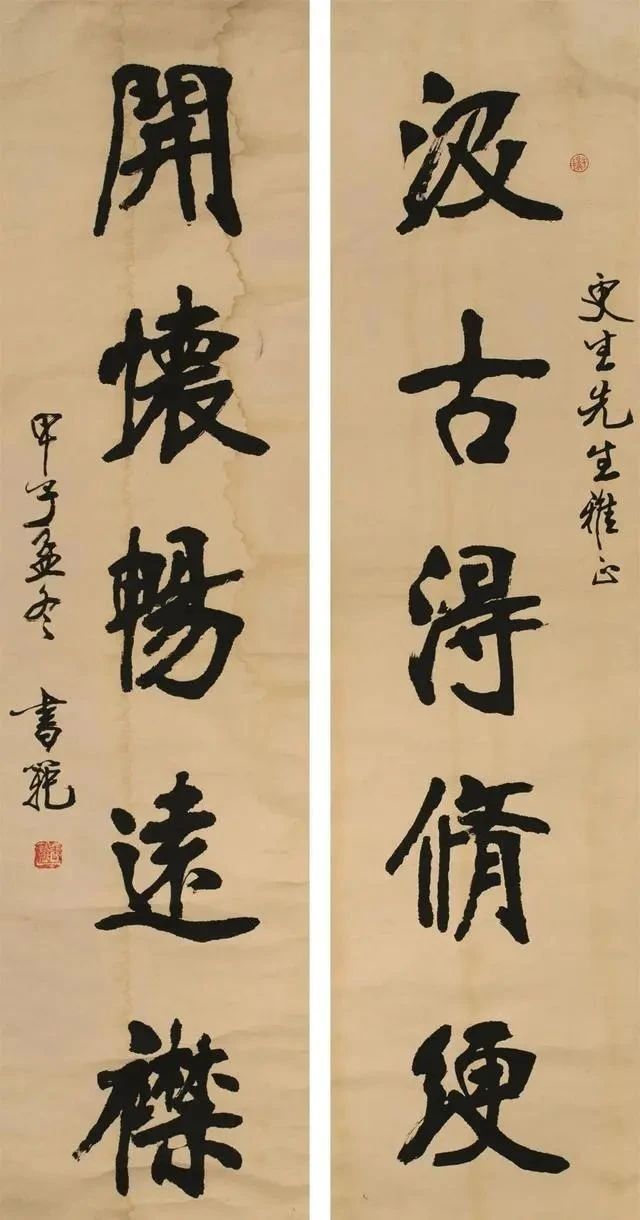 更生先生雅正
汲古得脩綆
開懷暢遠襟
甲子孟冬 書範